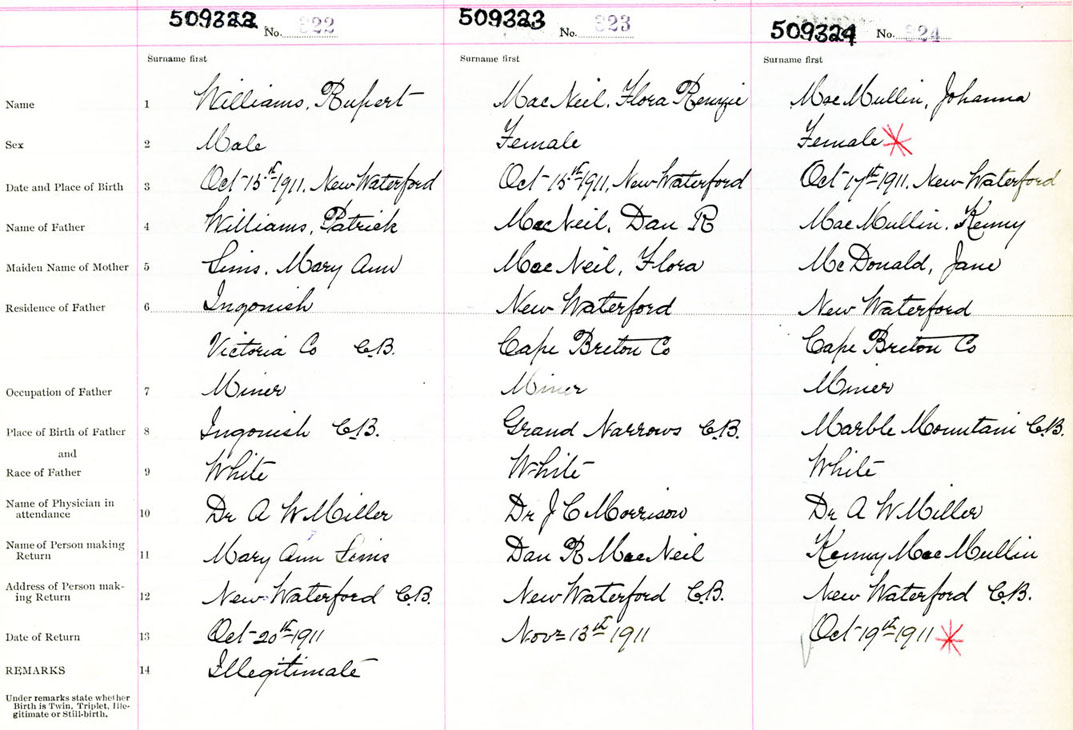 509322 No. 322 509323 No. 323 509324 No. 324
Surname first Surname first Surname first
Name 1 Williams, Rupert MacNeil, Flora Renzie MacMullin, Johanna
Sex 2 Male Female Female
Date and Place of Birth 3 Oct 15th 1911, New Waterford Oct 15th 1911, New Waterford Oct 17th 1911, New Waterford
Name of Father 4 Williams, Patrick MacNeil, Dan R MacMullin, Kenny
Maiden Name of Mother 5 Sims, Mary Ann MacNeil, Flora McDonald, Jane
Residence of Father 6 Ingonish New Waterford New Waterford
Victoria Co C.B. Cape Breton Co Cape Breton Co
Occupation of Father 7 Miner Miner Miner
Place of Birth of Father 8 Ingonish C.B. Grand Narrows C.B. Marble Mountain C.B.
and
Race of Father 9 White White White
Name of Physician in
attendance 10 Dr A W Miller Dr J C Morrison Dr A W Miller
Name of Person making
Return 11 Mary Ann Sims Dan R MacNeil Kenny MacMullin
Address of Person mak-
ing Return 12 New Waterford C.B. New Waterford C.B. New Waterford C.B.
Date of Return 13 Oct 20th 1911 Nov 13th 1911 Oct 19th 1911
REMARKS 14 Illegitimate
Under remarks state whether
Birth is Twin, Triplet, Ille-
gitimate or Still-birth.